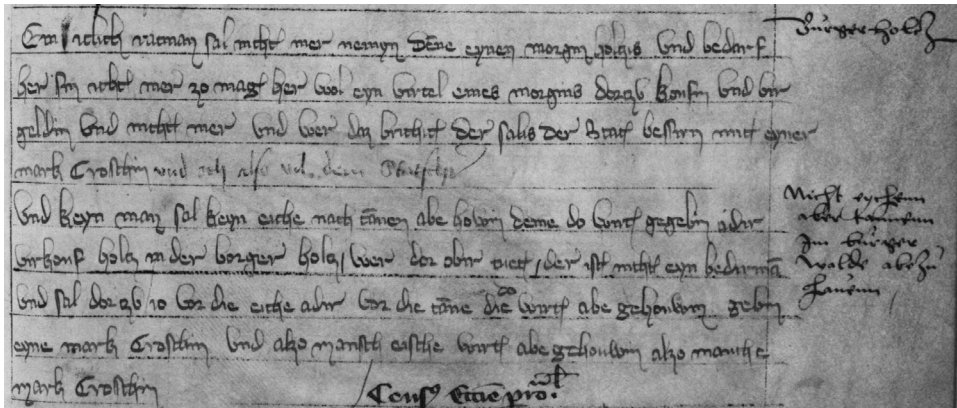 Ein iclich ritman sal nicht mer nemyn dene eynen morgin holcis vnd bedarf
her sin icht mer zo mag her wol eyn virtel eines morgins dorczv koufin vnd vir
geldin vnd nicht mer vnd wer daz brichit der salis der stat bessirn mit eyner
mark Groschin vnd
vnd keyn man sal keyn eiche nach tanen abe howin deme do wirt gegebin adir
virkouf holcz in der borger holcz / wer dor obir tut / der ist nicht eyn bedirman
vnd sal dorczv io vor die eiche adir vor die tanne die do wirt abe gehouwin gebin
eyne mark Groschin vnd alzo manch eiche wirt abe gehouwin alzo manche
mark Groschin
Burger holcz
Nicht eychenn
aber tannenn
Im burger
walde abezu
hauenn
Census